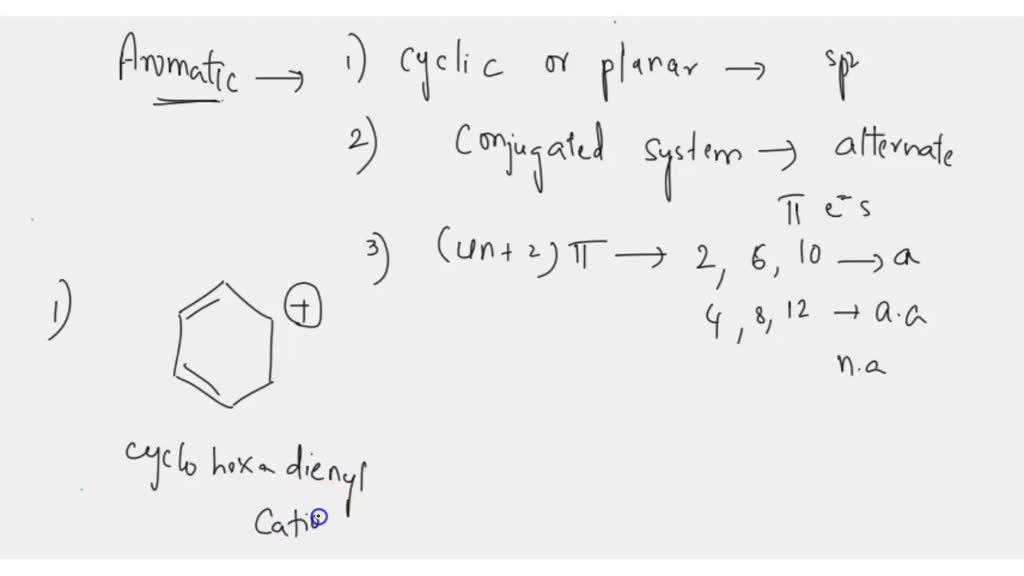 Aromatic → 1) cyclic or planar → sp2
2) Conjugated system → alternate
π e-s
3) (4n+2) π → 2, 6, 10 → a
4, 8, 12 → a.a
n.a
1) +
cyclo hexa dienyl
Catio